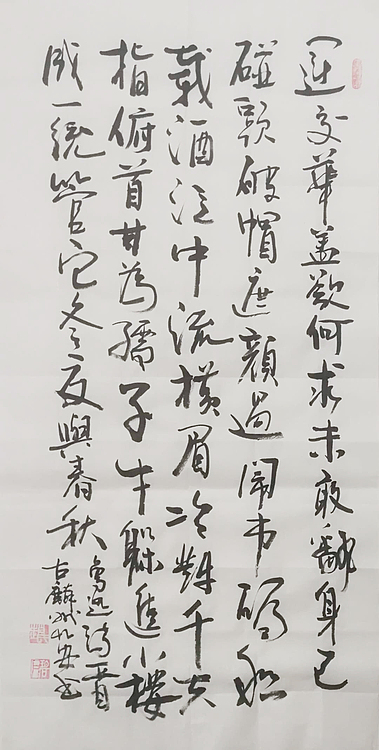 運交華蓋欲何求未敢翻身已
碰頭破帽遮顏過鬧市漏船
載酒泛中流橫眉冷對千夫
指俯首甘為孺子牛躲進小樓
成一統管它冬夏與春秋
魯迅詩一首
古麟 書